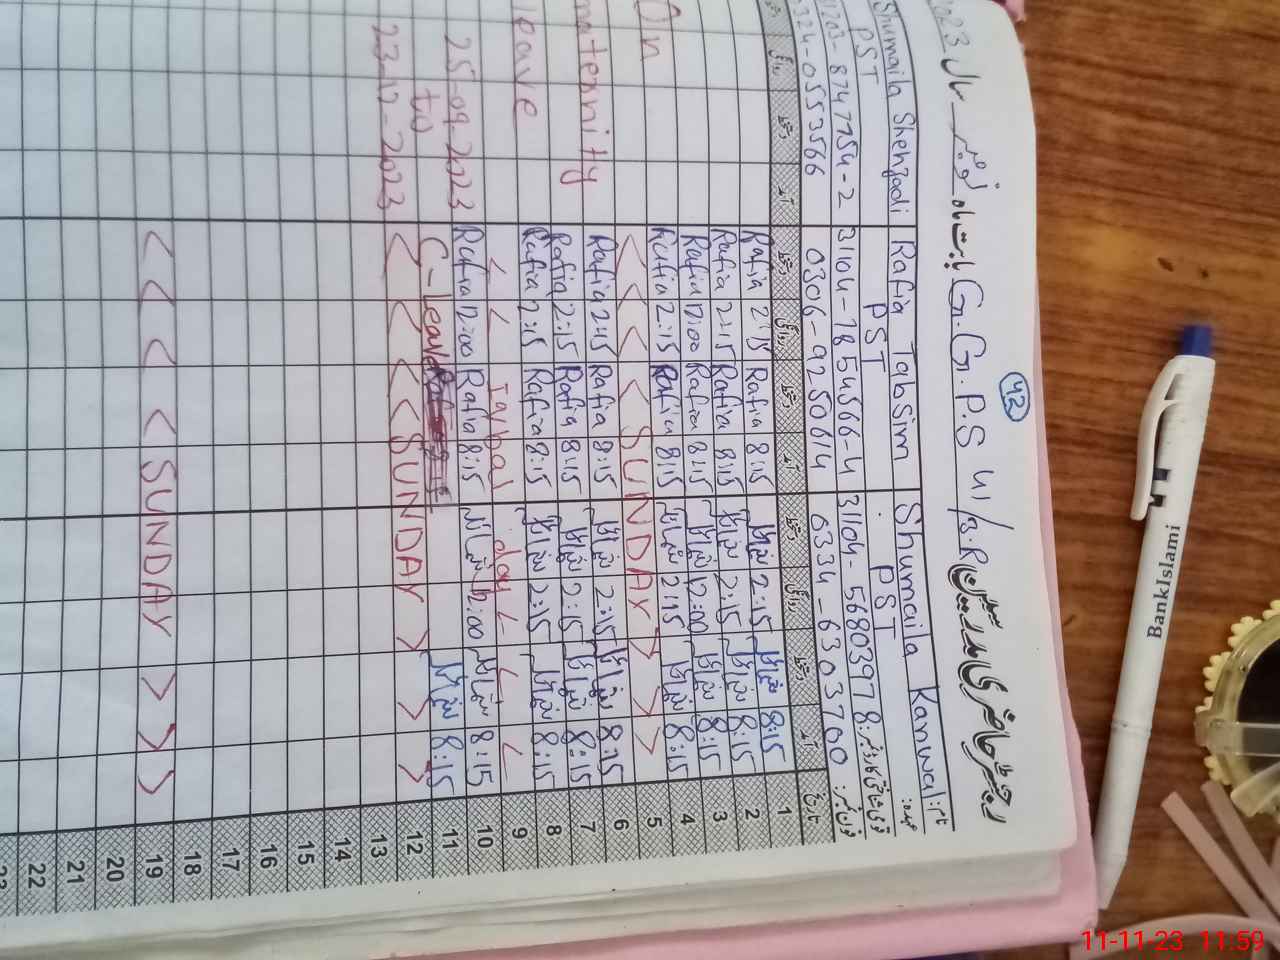 42
رجسٹر حاضری مدرسین G.G.P.S 41/B.R بابت ماہ نومبر سال 2023
نام: Shumaila Kanwal Rafia Tabsim Shumaila Shehzadi
عہدہ: PST PST PST
31104-5680397 8 31104-7854566-4 31203-8747754-2
فون نمبر: 0334-6303700 0306-9250614 0324-0553566
تاریخ آمد دستخط روانگی دستخط آمد دستخط روانگی دستخط آمد دستخط روانگی
1 8:15 2:15 Rafia 8:15 Rafia 2:15
2 8:15 2:15 Rafia 8:15 Rafia 2:15
3 8:15 12:00 Rafia 8:15 Rafia 12:00
4 8:15 2:15 Rafia 8:15 Rafia 2:15 On
5 SUNDAY
6 8:15 2:15 Rafia 8:15 Rafia 2:15 maternity
7 8:15 2:15 Rafia 8:15 Rafia 2:15
8 8:15 2:15 Rafia 8:15 Rafia 2:15 leave
9 Iqbal day
10 8:15 12:00 Rafia 8:15 Rafia 12:00 25-09-2023
11 8:15 C-Leave to
12 SUNDAY 23-12-2023
13
14
15
16
17
18
19 SUNDAY
20
21
22
23
BankIslami
11-11-23 11:59